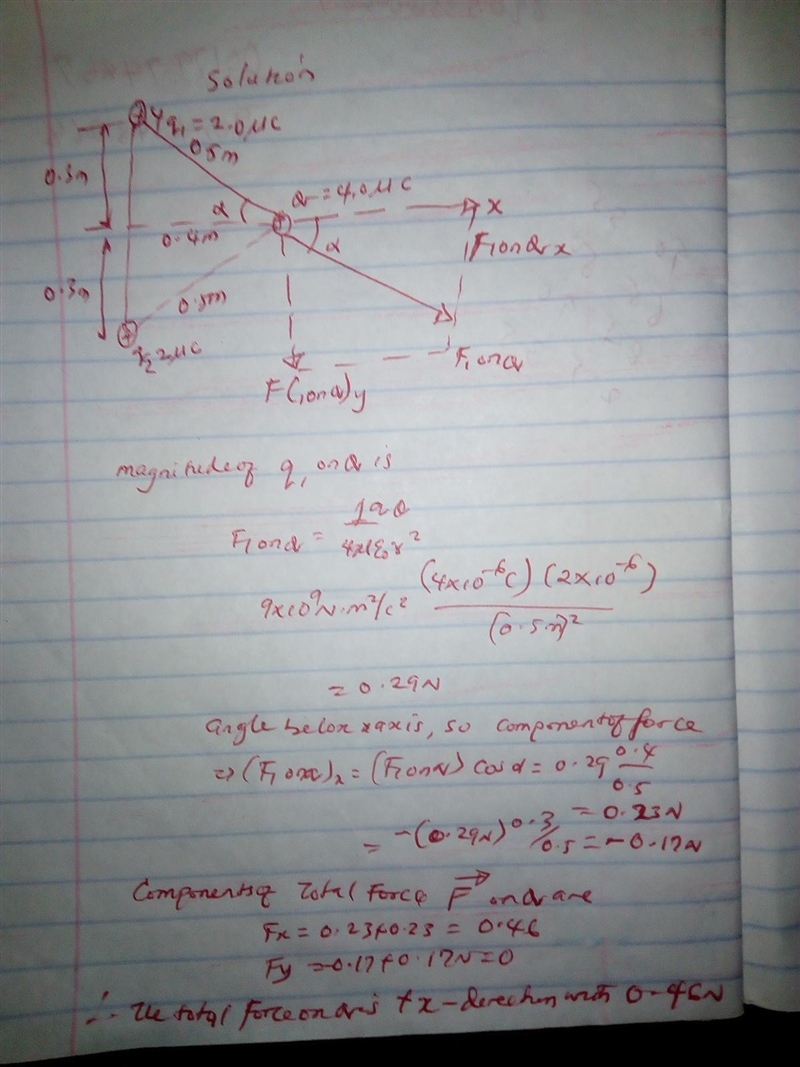 Solution
q₁ = 2.0 μC
0.5m
0.3m
Q = 4.0 μC
α
x
0.4m
α
F₁onQx
0.3m
0.5m
q₂ 2 μC
F₁onQ
F(₁onQ)y
magnitude of q₁ onQ is
F₁onQ = 1qQ / 4πε₀r²
9x10⁹N·m²/c² (4x10⁻⁶C) (2x10⁻⁶) / (0.5m)²
= 0.29N
angle below x axis, so component of force
⇒ (F₁onQ)x = (F₁onQ) cosα = 0.29 0.4/0.5
= 0.23N
= -(0.29N) 0.3/0.5 = -0.17N
Components of Total Force F⃗ onQ are
Fx = 0.23+0.23 = 0.46
Fy = -0.17+0.17N = 0
∴ The total force onQ is +x-direction with 0.46N